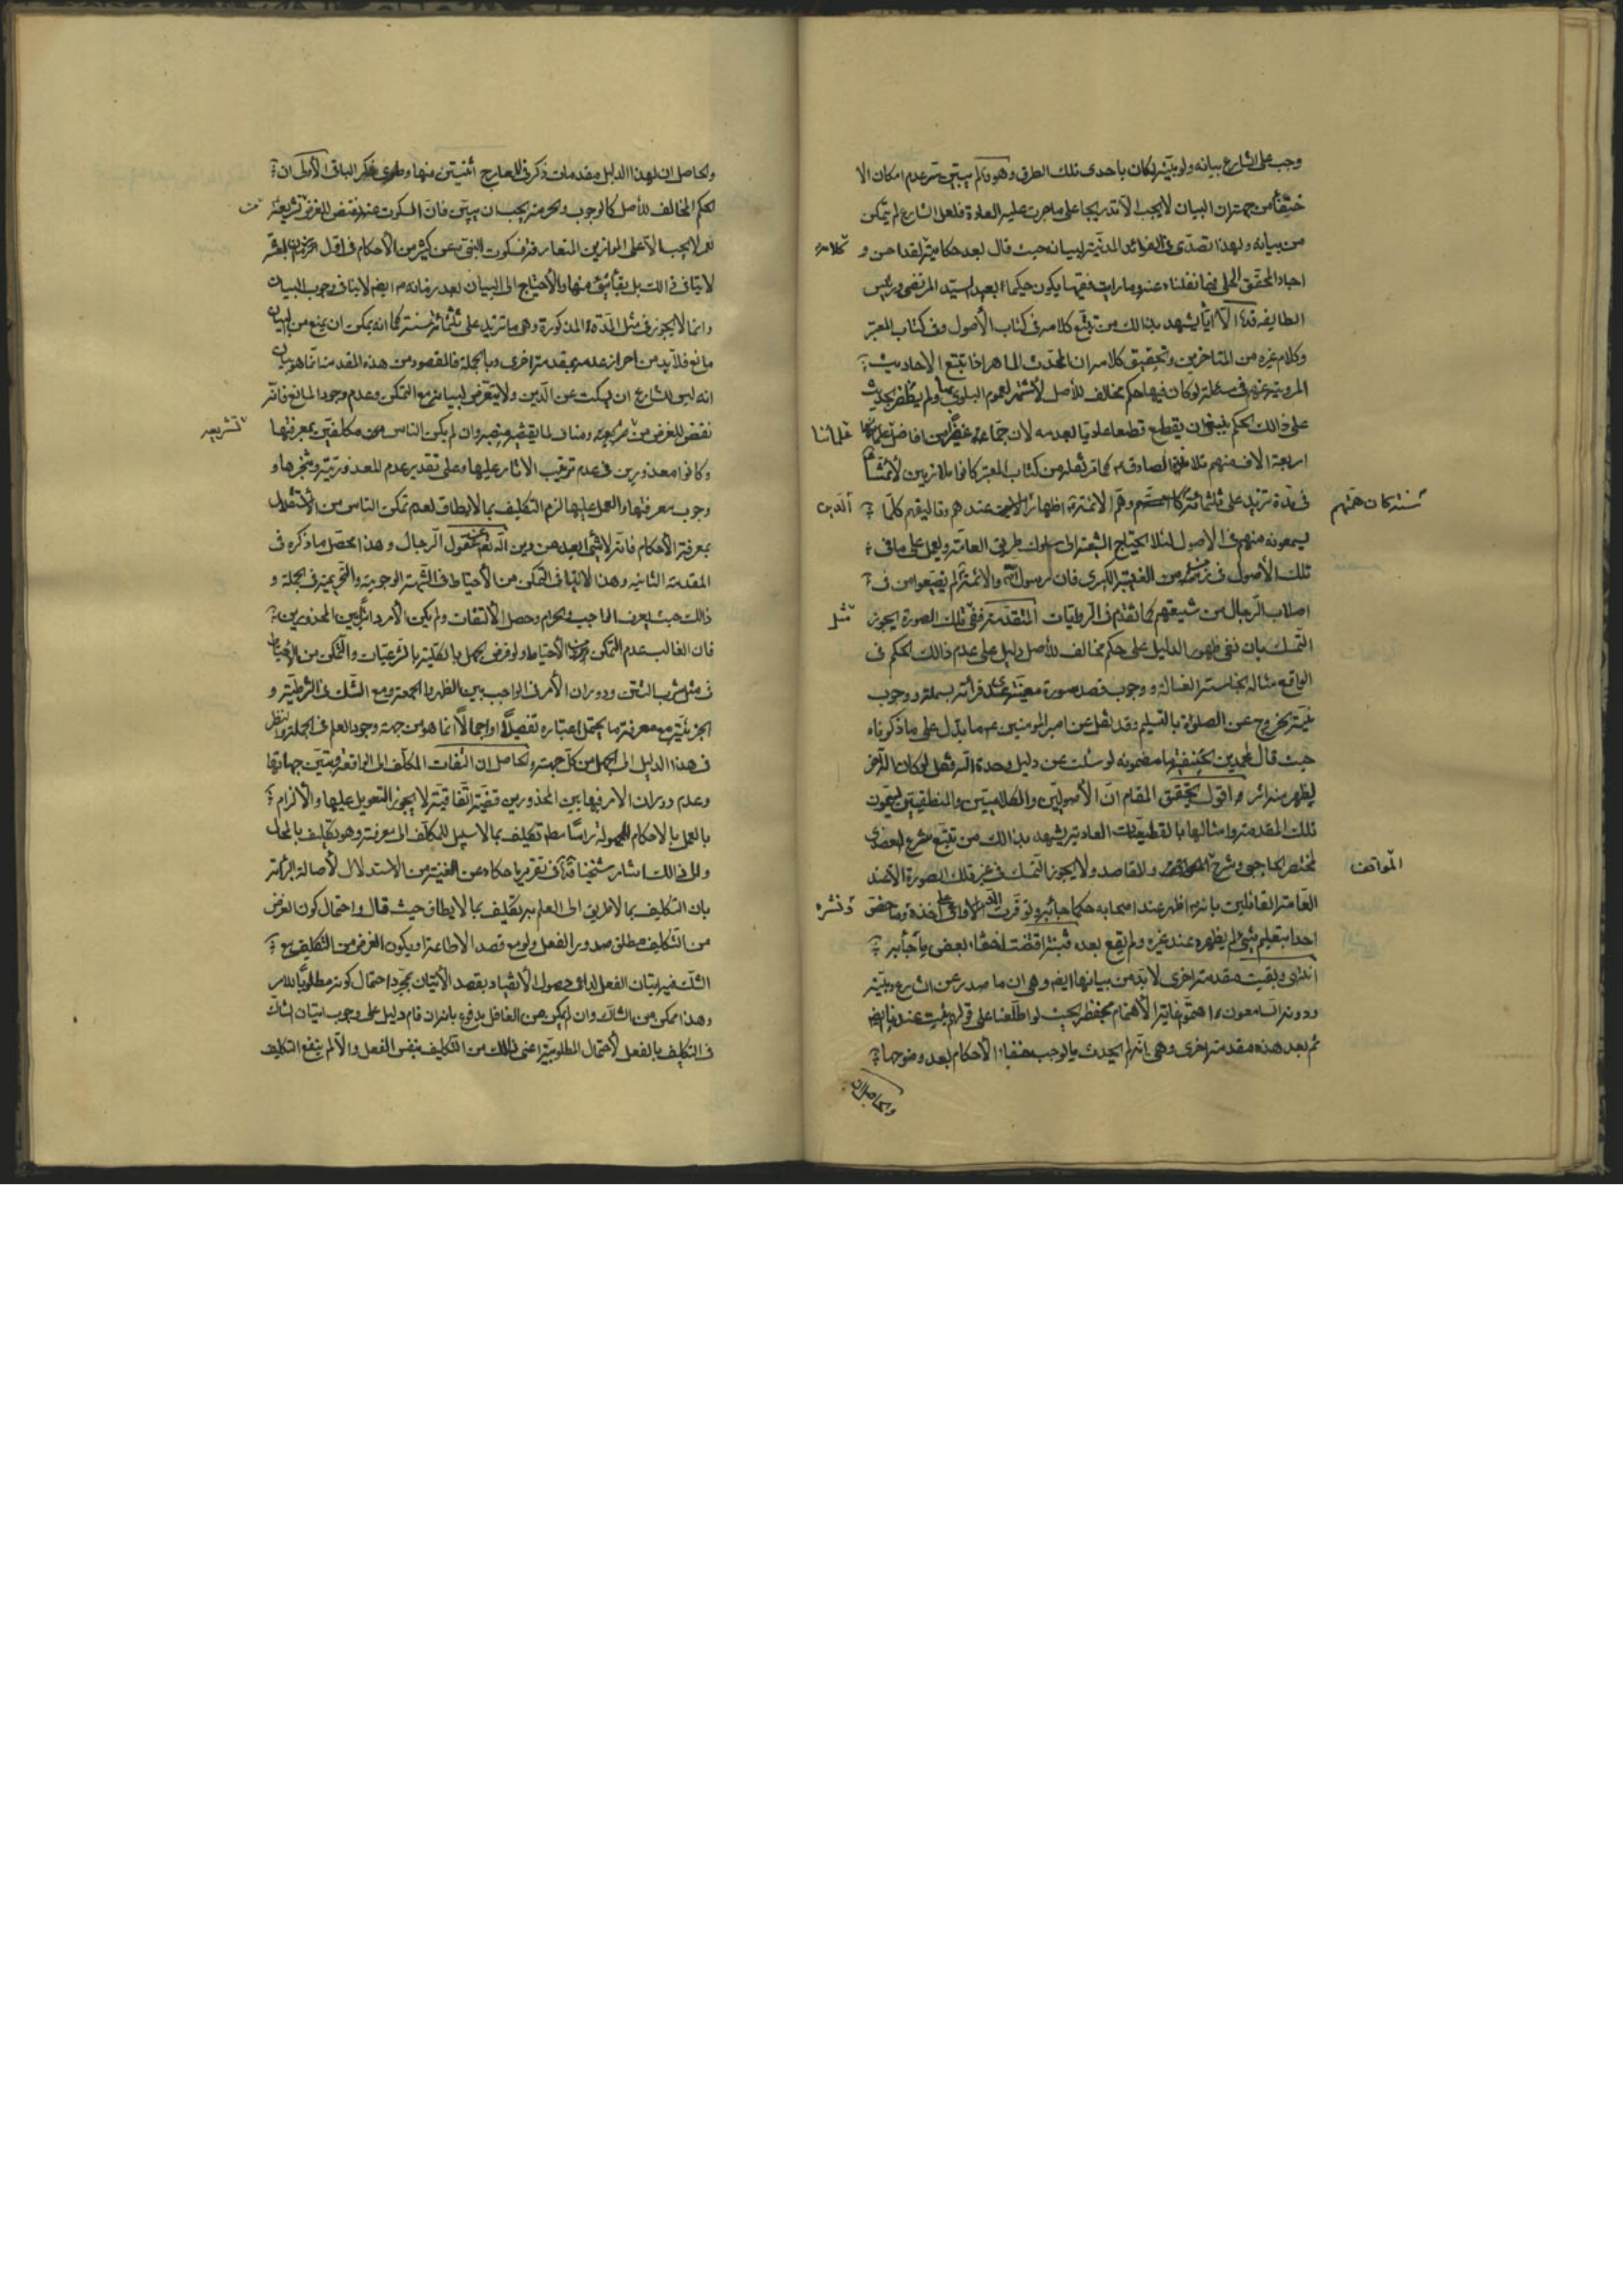 وجب على الشارع بيانه ولو بينه لكان باحدى تلك الطرق وهو لم يبين مع عدم امكان الا
خفاء من جهة ان البيان لا يجب الا تدريجا على ما جرت عليه العادة فلعل الشارع لم يتمكن
من بيانه ولهذا تصدى فى الفوائد المدنية لبيانه حيث قال بعد حكاية لقد احسن و
اجاد المحقق الحلى فيما نقلناه عنه وما رايت فقيها يكون حكيما بعد السيد المرتضى ورئيس
الطايفة الا اياه يشهد بذلك من تتبع كلامه فى كتاب الأصول وفى كتاب المعتبر
وكلام غيره من المتاخرين وتحقيق كلامه ان المحدث الماهر اذا تتبع الاحاديث
المروية عنهم فى مسئلة لو كان فيها حكم مخالف للأصل لاشتهر لعموم البلوى بها ولم يظفر بحديث
على ذلك الحكم ينبغى ان يقطع قطعا عاديا بعدمه لان جما غفيرا من افاضل علمائنا
اربعة الاف منهم تلامذة الصادق كما مر نقله من كتاب المعتبر كانوا ملازمين لأئمتنا
فى مدة تزيد على ثلثمائة سنة كان همتهم وهم الائمة اظهار الدين عندهم وتاليفهم كلما
يسمعونه منهم فى الاصول لئلا يحتاج الشيعة الى سلوك طريق العامة وليعمل على ما فى
تلك الأصول فى زمن الغيبة الكبرى فان رسول الله والائمة لم يضيعوا من فى
اصلاب الرجال من شيعتهم كما تقدم فى الروايات المتقدمة ففى مثل تلك الصورة يجوز
التمسك بان نفى ظهور الدليل على حكم مخالف للأصل دليل على عدم ذلك الحكم فى
الواقع مثاله نجاسة الغسالة ووجوب قصد سورة معينة عند قرائة بسملة ووجوب
نية الخروج عن الصلوة بالتسليم وقد نقل عن امير المومنين ما يدل على ما ذكرناه
حيث قال لمحمد بن الحنفية ما مضمونه لو سئلت عن دليل وحدة اله فقل لو كان اله آخر
ليظهر منه اثر واقول تحقيق المقام ان الأصوليين والكلاميين والمنطقيين يسمون
تلك المقدمة وامثالها بالقطعيات العادية يشهد بذلك من تتبع شرح العضدى
لمختصر الحاجبى وشرح المواقف والمقاصد ولا يجوز التمسك فى غير تلك الصورة الا عند
العامة القائلين بانه اظهر عند اصحابه كلما جاء به وتوفرت الدواعى على اخذه ونشره وما خص
احدا بتعليم شئ لم يظهره عند غيره ولم يقع بعده فتنة اقتضت اخفاء بعض ما جاء به
انتهى وبقيت مقدمة اخرى لا بد من بيانها ايضا وهى ان ما صدر عن الشارع وبينه
ودونه السامعون اهتموا غاية الأهتمام بحفظه بحيث لو اطلعنا على
ثم بعد هذه مقدمة اخرى وهى انه لم يحدث ما يوجب خفاء الأحكام بعد وضوحها
والحاصل ان
كلامه
علمائنا
سنة كان همتهم
الدين
مثل
المواقف
ونشره
والحاصل ان لهذا الدليل مقدمات ذكر فى المعارج اثنيتين منها وطوى ذكر الباقى الأولى ان
الحكم المخالف للأصل كالوجوب والحرمة يجب ان يبين فان السكوت عنه نقض للغرض من تشريعه
نعم لا يجب الا على الموازين المتعارفة فسكوت النبى عن كثير من الأحكام فى اول
لا ينافى ذلك بل بقاء شئ منها والأحتياج الى البيان بعد زمانه ايضا لا ينافى وجوب البيان
وانما لا يجوز فى مثل المدة المذكورة وهى ما تزيد على ثلثمائة سنة كما انه يمكن ان يمنع من البيان
مانع فلا بد من احراز عدمه بمقدمة اخرى وبالجملة فالمقصود من هذه المقدمة انما هو بيان
انه ليس للشارع ان يسكت عن الدين ولا يتعرض لبيانه مع التمكن وعدم وجود المانع فانه
نقض للغرض من تشريعه ومناف لما يقتضيه منصبه وان لم يكن الناس مكلفين بمعرفتها
وكانوا معذورين فى عدم ترتيب الاثار عليها وعلى تقدير عدم المعذورية وتنجزها و
وجوب معرفتها والعمل عليها لزم التكليف بما لا يطاق لعدم تمكن الناس من الأستقلال
بمعرفة الأحكام فانه لا شئ ابعد من دين الله عن عقول الرجال وهذا محصل ما ذكره فى
المقدمة الثانية وهذا لا ينافى التمكن من الأحتياط فى الشبهة الوجوبية والتحريمية فى الجملة و
ذلك حيث يعرف الواجب والحرام وحصل الألتفات ولم يكن الأمر دائرا بين المحذورين
فان الغالب عدم التمكن من الأحتياط ولو فرض الجهل بالكلية بالشرعيات والتمكن من الأحتياط
فى مثل شرب التتن ودوران الأمر فى الواجب بين الظهر والجمعة ومع الشك فى الشرطية و
الجزئية مع معرفة ما يحتمل اعتباره تفصيلا او اجمالا انما هو من جهة وجود العلم فى الجملة والنظر
فى هذا الدليل الى الجهل من كل جهة والحاصل ان التفات المكلف الى الواقعة وتبين جهاتها
وعدم دوران الامر فيها بين المحذورين قضية اتفاقية لا يجوز التعويل عليها والألزام
بالعمل بالأحكام المجهولة راسا مط تكليف بما لا سبيل للمكلف الى معرفته وهو تكليف بالمحال
والى ذلك اشار شيخنا فى تقرير ما حكاه عن الغنية من الاستدلال لأصالة البرائة
بان التكليف بما لا طريق الى العلم به تكليف بما لا يطاق حيث قال واحتمال كون الغرض
من التكليف مطلق صدور الفعل ولو مع قصد الاطاعة او يكون الغرض من التكليف مع
الشك فيه اتيان الفعل لداعى حصول الأنقياد بقصد الأتيان بمجرد احتمال كونه مطلوبا للامر
وهذا ممكن من الشاك وان لم يكن من الغافل مدفوع بانه ان قام دليل على وجوب اتيان الشاك
فى التكليف بالفعل لأحتمال المطلوبية اغنى ذلك من التكليف بنفس الفعل والا لم ينفع التكليف
تشريعه